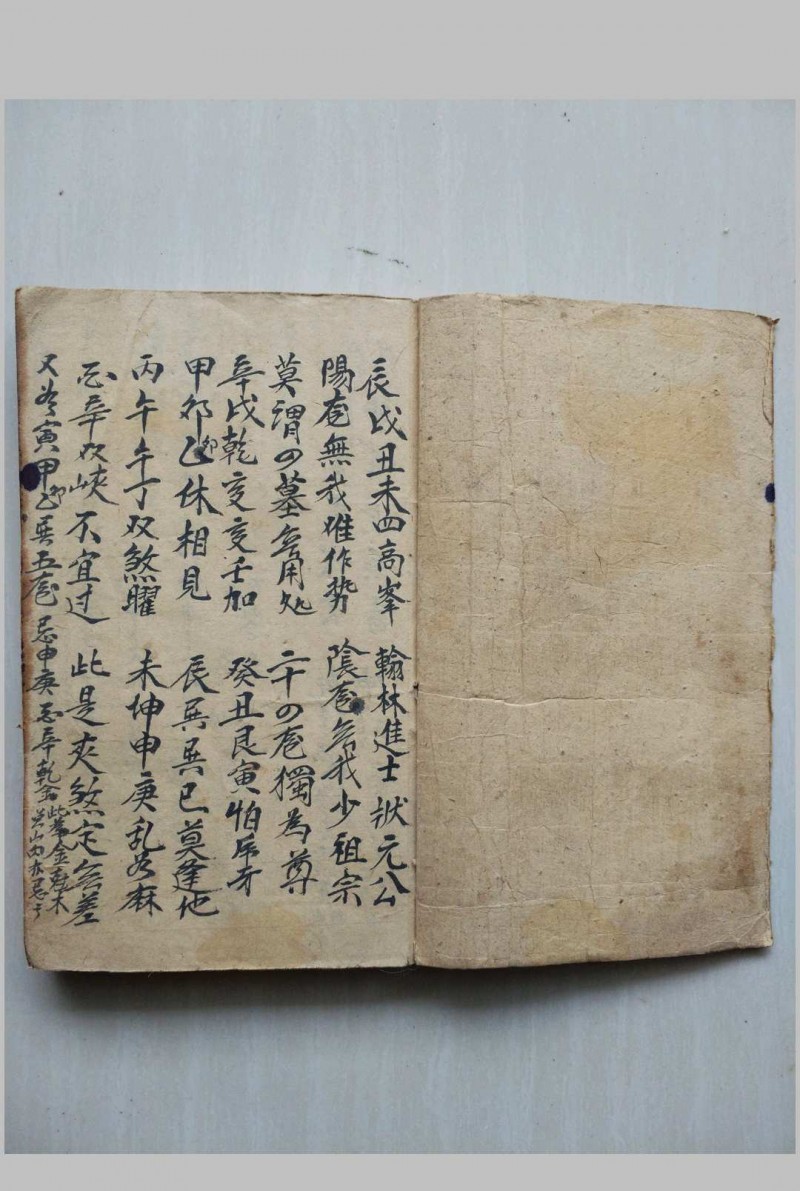 辰戌丑未四高峯 翰林進士状元公
陽宅無我难作势 陰宅无我少祖宗
莫谓四墓无用処 二十四宅獨為尊
辛戌乾亥亥壬加 癸丑艮寅怕
甲卯乙卯休相見 辰巽巽巳莫逢他
丙午午丁双煞曜 未坤申庚乱如麻
酉辛双峡不宜过 此是夾煞定无差
又为寅甲卯乙巽五宅 忌申庚酉辛乾金 此为金尅木